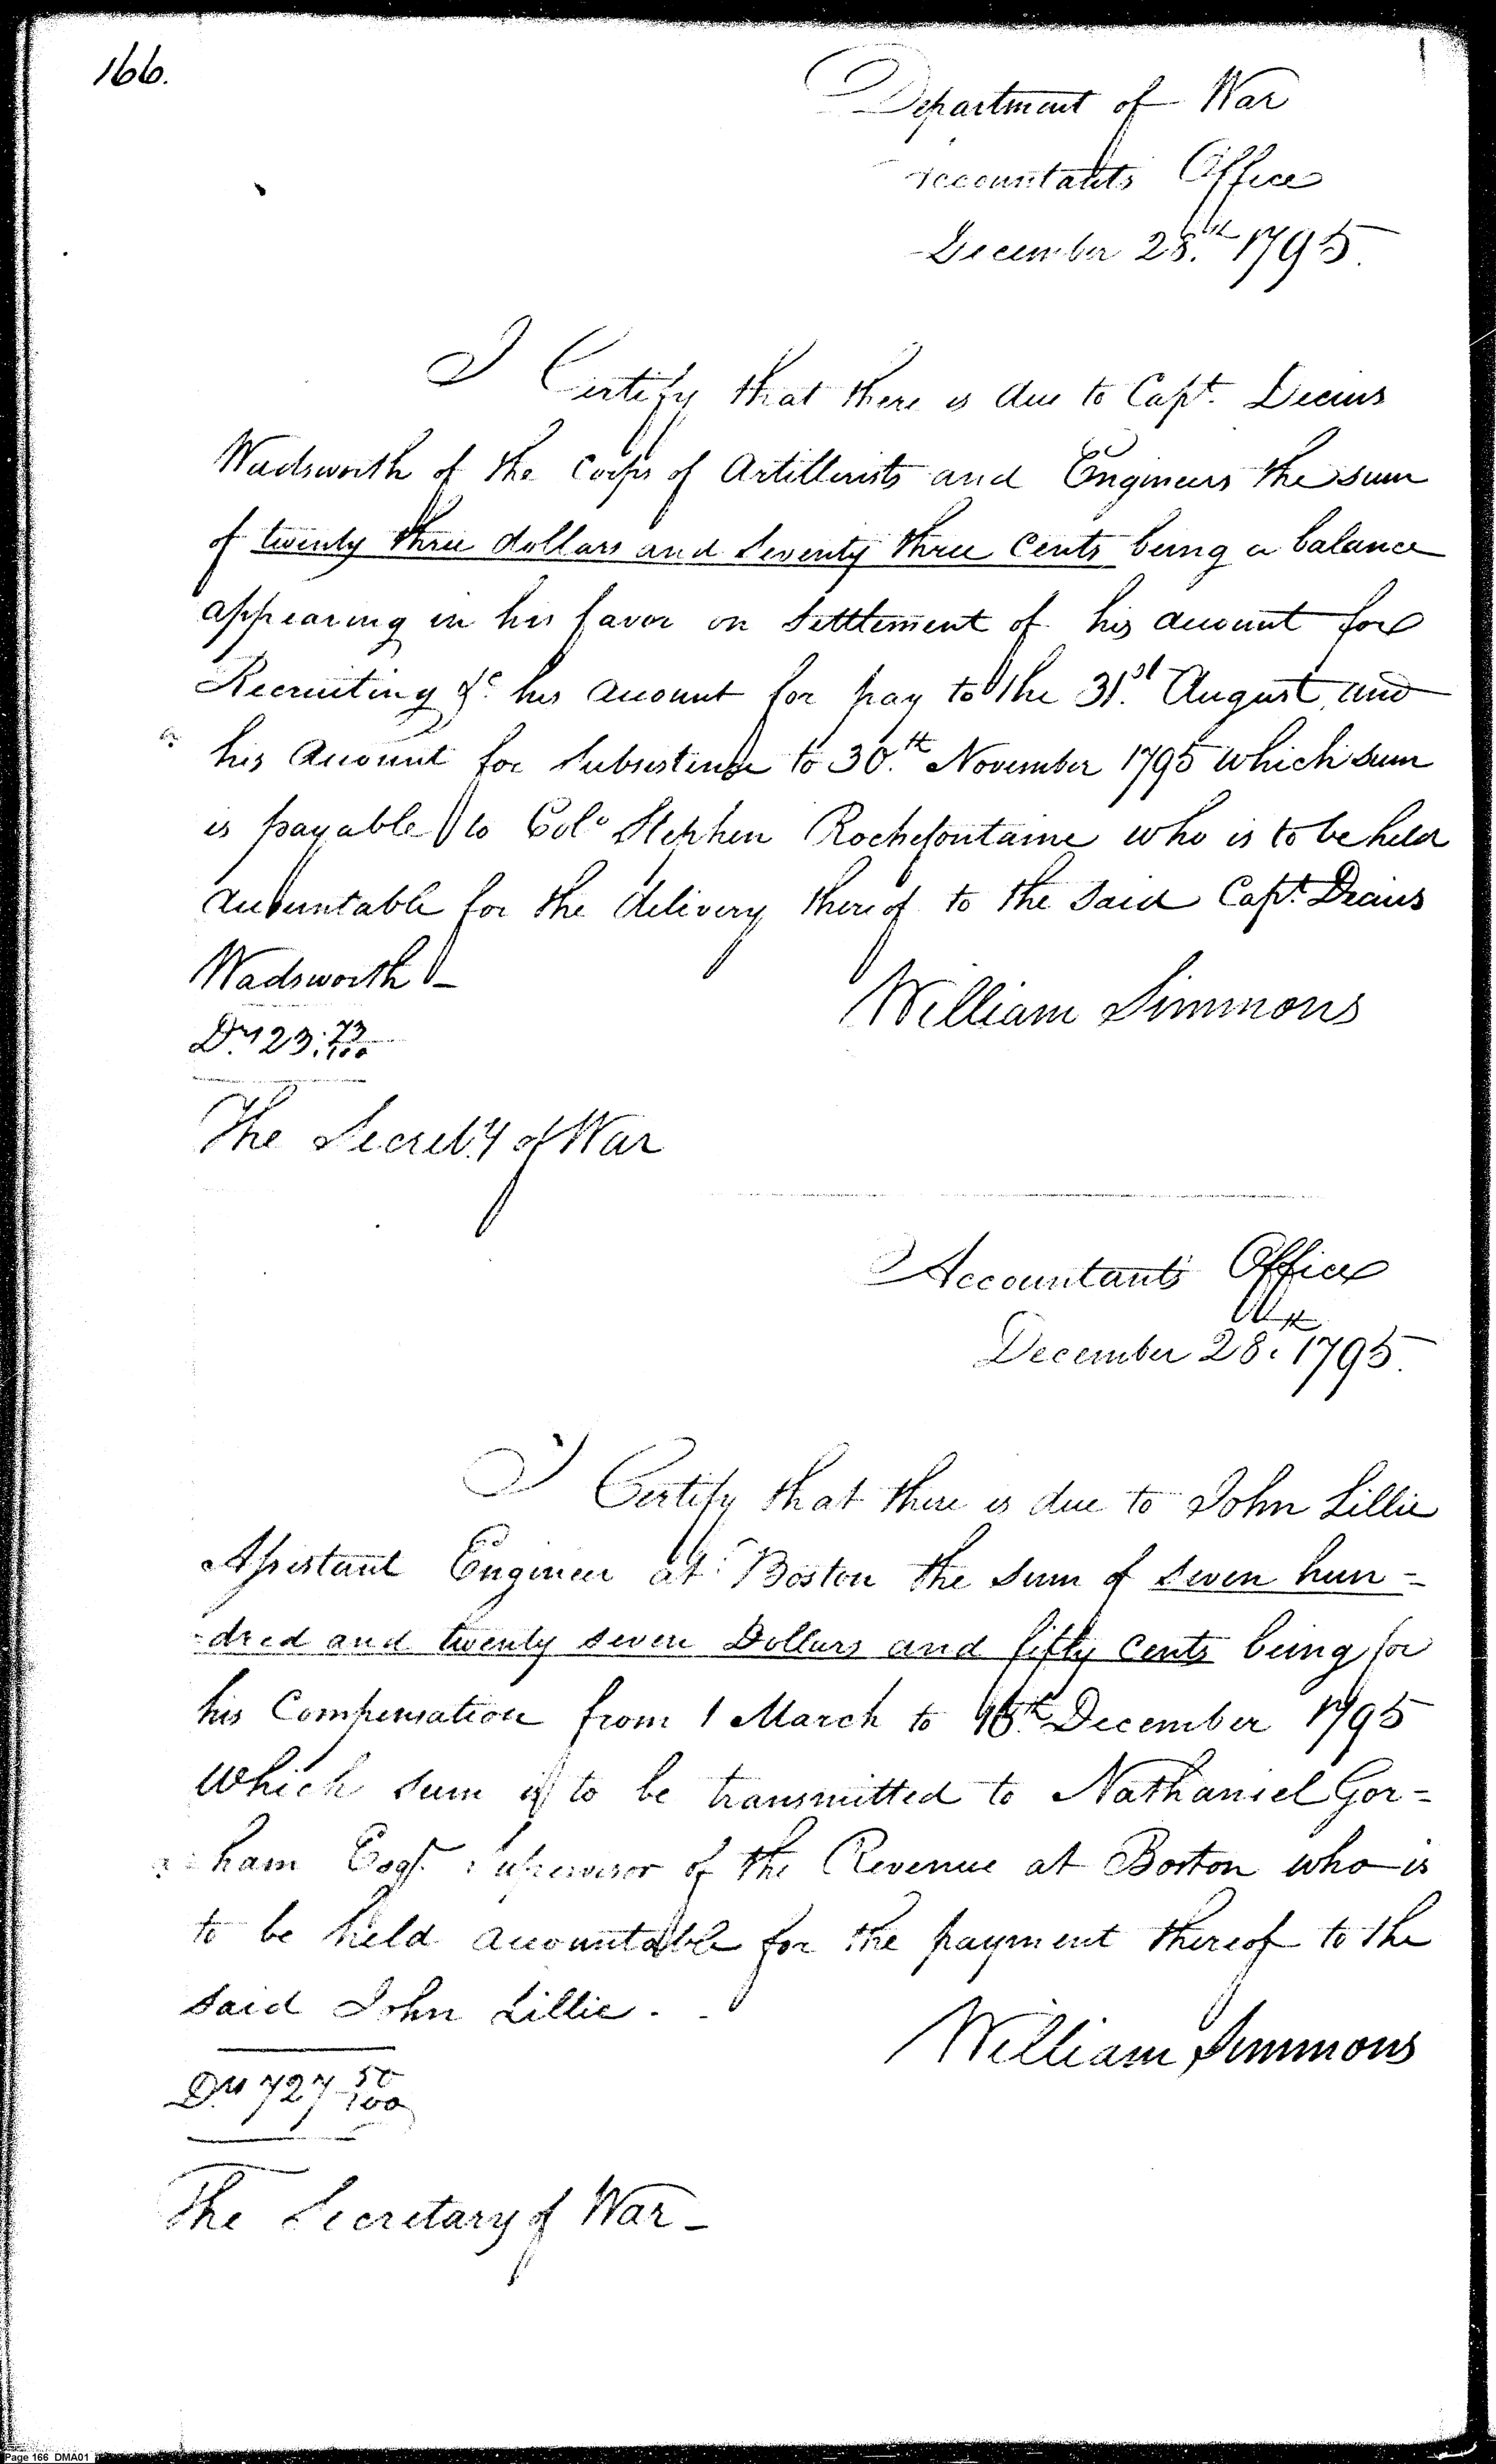 166.
Department of War
Accountants Office
December 28.th 1795.
I Certify that there is due to Capt. Decius
Wadsworth of the Corps of Artillerists and Engineers the sum
of twenty three dollars and seventy three Cents being a balance
appearing in his favor on settlement of his account for
Recruiting &c. his account for pay to the 31.st August, and
his account for Subsistence to 30.th November 1795 which sum
is payable to Colo Stephen Rochefontaine who is to be held
accountable for the delivery thereof to the said Capt. Decius
Wadsworth –
William Simmons
Drs 23. 73/100
The Secret.y of War
Accountants Office
December 28.th 1795.
I Certify that there is due to John Lillie
Assistant Engineer at Boston the sum of seven hun=
=dred and twenty seven Dollars and fifty Cents being for
his Compensation from 1 March to th December 1795
which sum is to be transmitted to Nathaniel Gor=
=ham Esqr. Supervisor of the Revenue at Boston who is
to be held accountable for the payment thereof to the
said John Lillie. -
William Simmons
Drs 727 50/100
The Secretary of War –
Page 166 DMA01